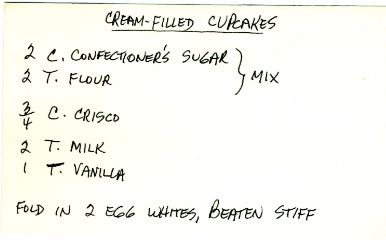 CREAM-FILLED CUPCAKES
2 C. CONFECTIONER'S SUGAR
2 T. FLOUR
MIX
3/4 C. CRISCO
2 T. MILK
1 T. VANILLA
FOLD IN 2 EGG WHITES, BEATEN STIFF